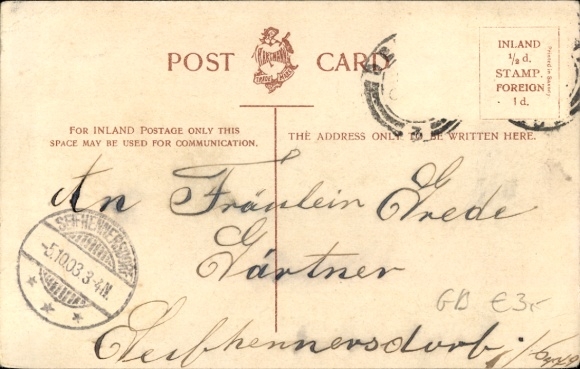 POST CARD
HARTMANN
TRADE MARK
INLAND
½ d.
STAMP.
FOREIGN
1d.
Printed in Saxony
FOR INLAND POSTAGE ONLY THIS
SPACE MAY BE USED FOR COMMUNICATION.
THE ADDRESS ONLY TO BE WRITTEN HERE.
An Fräulein Grede
Gärtner
Seifhennersdorf
SEIFHENNERSDORF
-5.10.03.3-4N.
3
GB €3,-